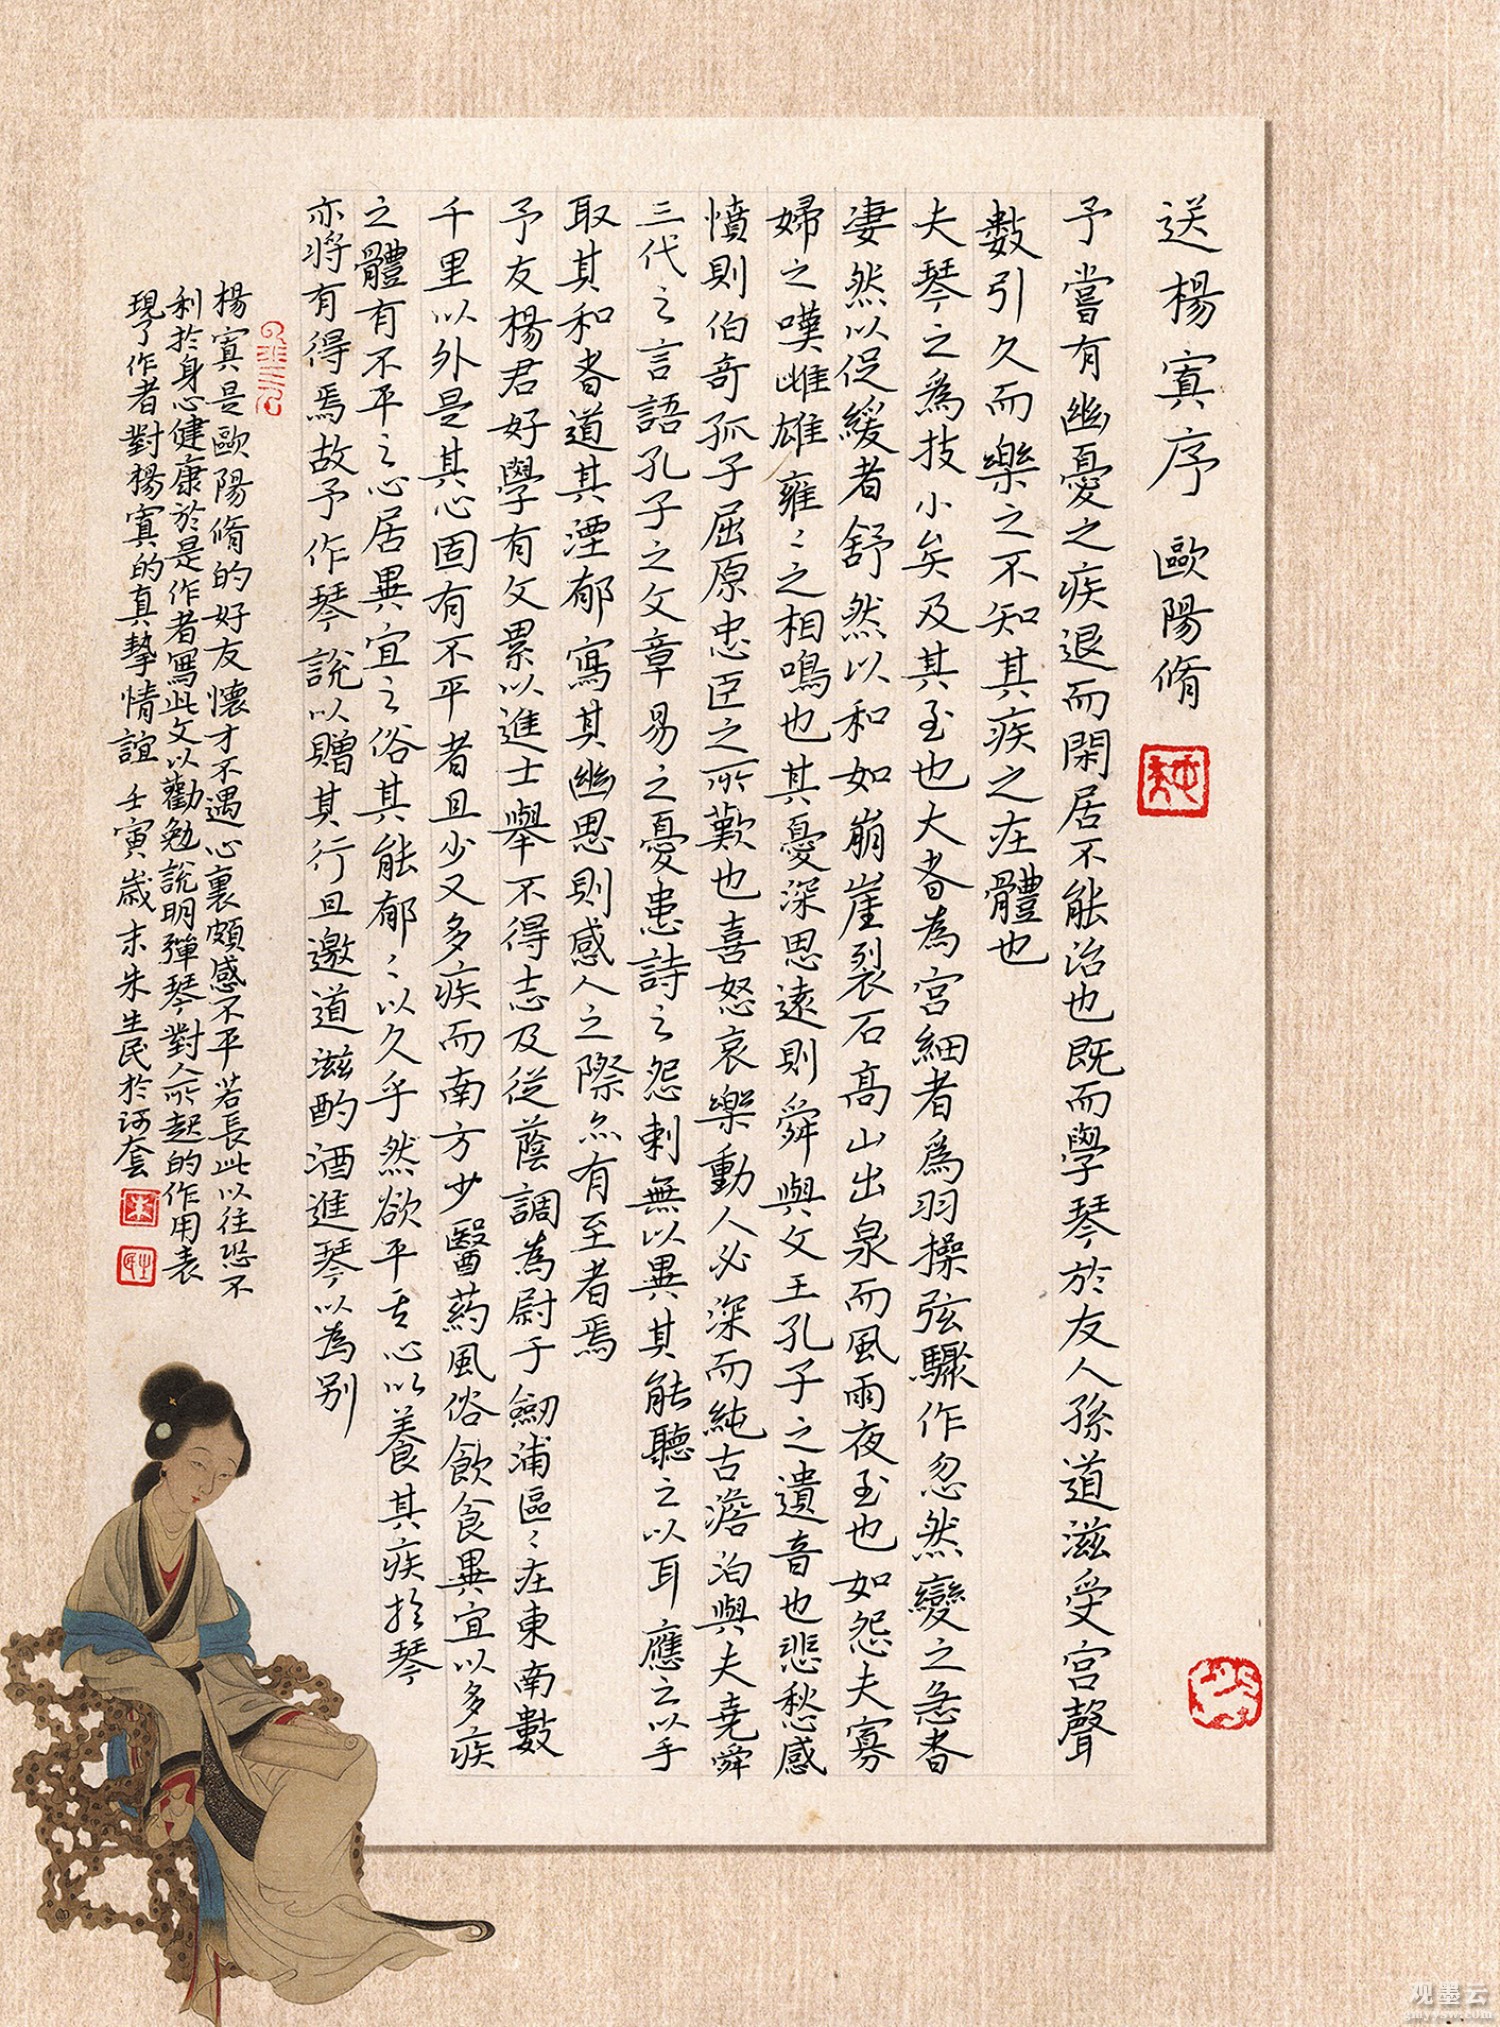 送楊寘序 歐陽脩
予嘗有幽憂之疾退而閑居不能治也既而學琴於友人孫道滋受宮聲
數引久而樂之不知其疾之在體也
夫琴之為技小矣及其至也大者為宮細者為羽操弦驟作忽然變之急者
淒然以促緩者舒然以和如崩崖裂石高山出泉而風雨夜至也如怨夫寡
婦之嘆雌雄雍〻之相鳴也其憂深思遠則舜與文王孔子之遺音也悲愁感
憤則伯奇孤子屈原忠臣之所歎也喜怒哀樂動人必深而純古澹泊與夫堯舜
三代之言語孔子之文章易之憂患詩之怨刺無以異其能聽之以耳應之以手
取其和者道其湮郁寫其幽思則感人之際亦有至者焉
予友楊君好學有文累以進士舉不得志及從蔭調為尉于劍浦區〻在東南數
千里以外是其心固有不平者且少又多疾而南方少醫药風俗飲食異宜以多疾
之體有不平之心居異宜之俗其能郁〻以久乎然欲平其心以養其疾於琴
亦將有得焉故予作琴說以贈其行且邀道滋酌酒進琴以為別
楊寘是歐陽脩的好友懷才不遇心裏頗感不平若長此以往恐不
利於身心健康於是作者寫此文以勸勉說明彈琴對人所起的作用表
現了作者對楊寘的真摯情誼 壬寅歲末朱生民於河套
观墨云
gmyysw.com